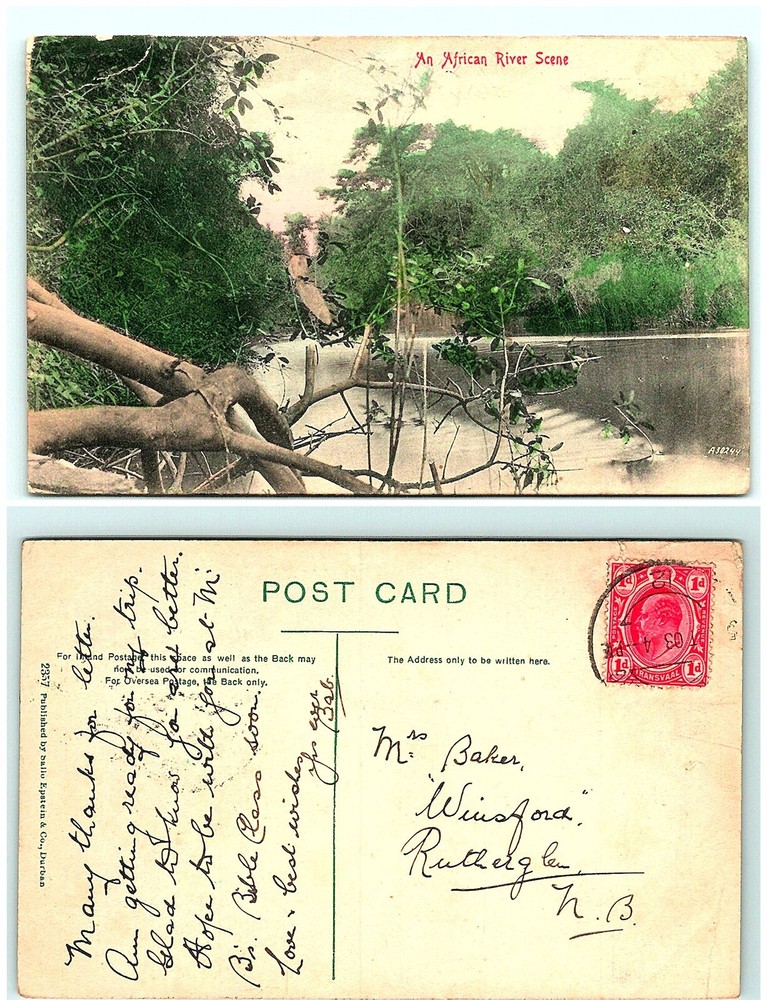 An African River Scene
A38244
POST CARD
For Inland Postage, this space as well as the Back may
not be used for communication.
For Oversea Postage, the Back only.
The Address only to be written here.
2357 Published by Sallo Epstein & Co., Durban
Many thanks for letter.
Am getting ready for my trip.
Glad to know
better.
Hope to be with you at Mr
B's. Bible Class soon.
Love & best wishes
Yrs
Bab.
1d 1d
1d TRANSVAAL 1d
Mrs Baker,
"Winsford,"
Rutherglen,
N.B.